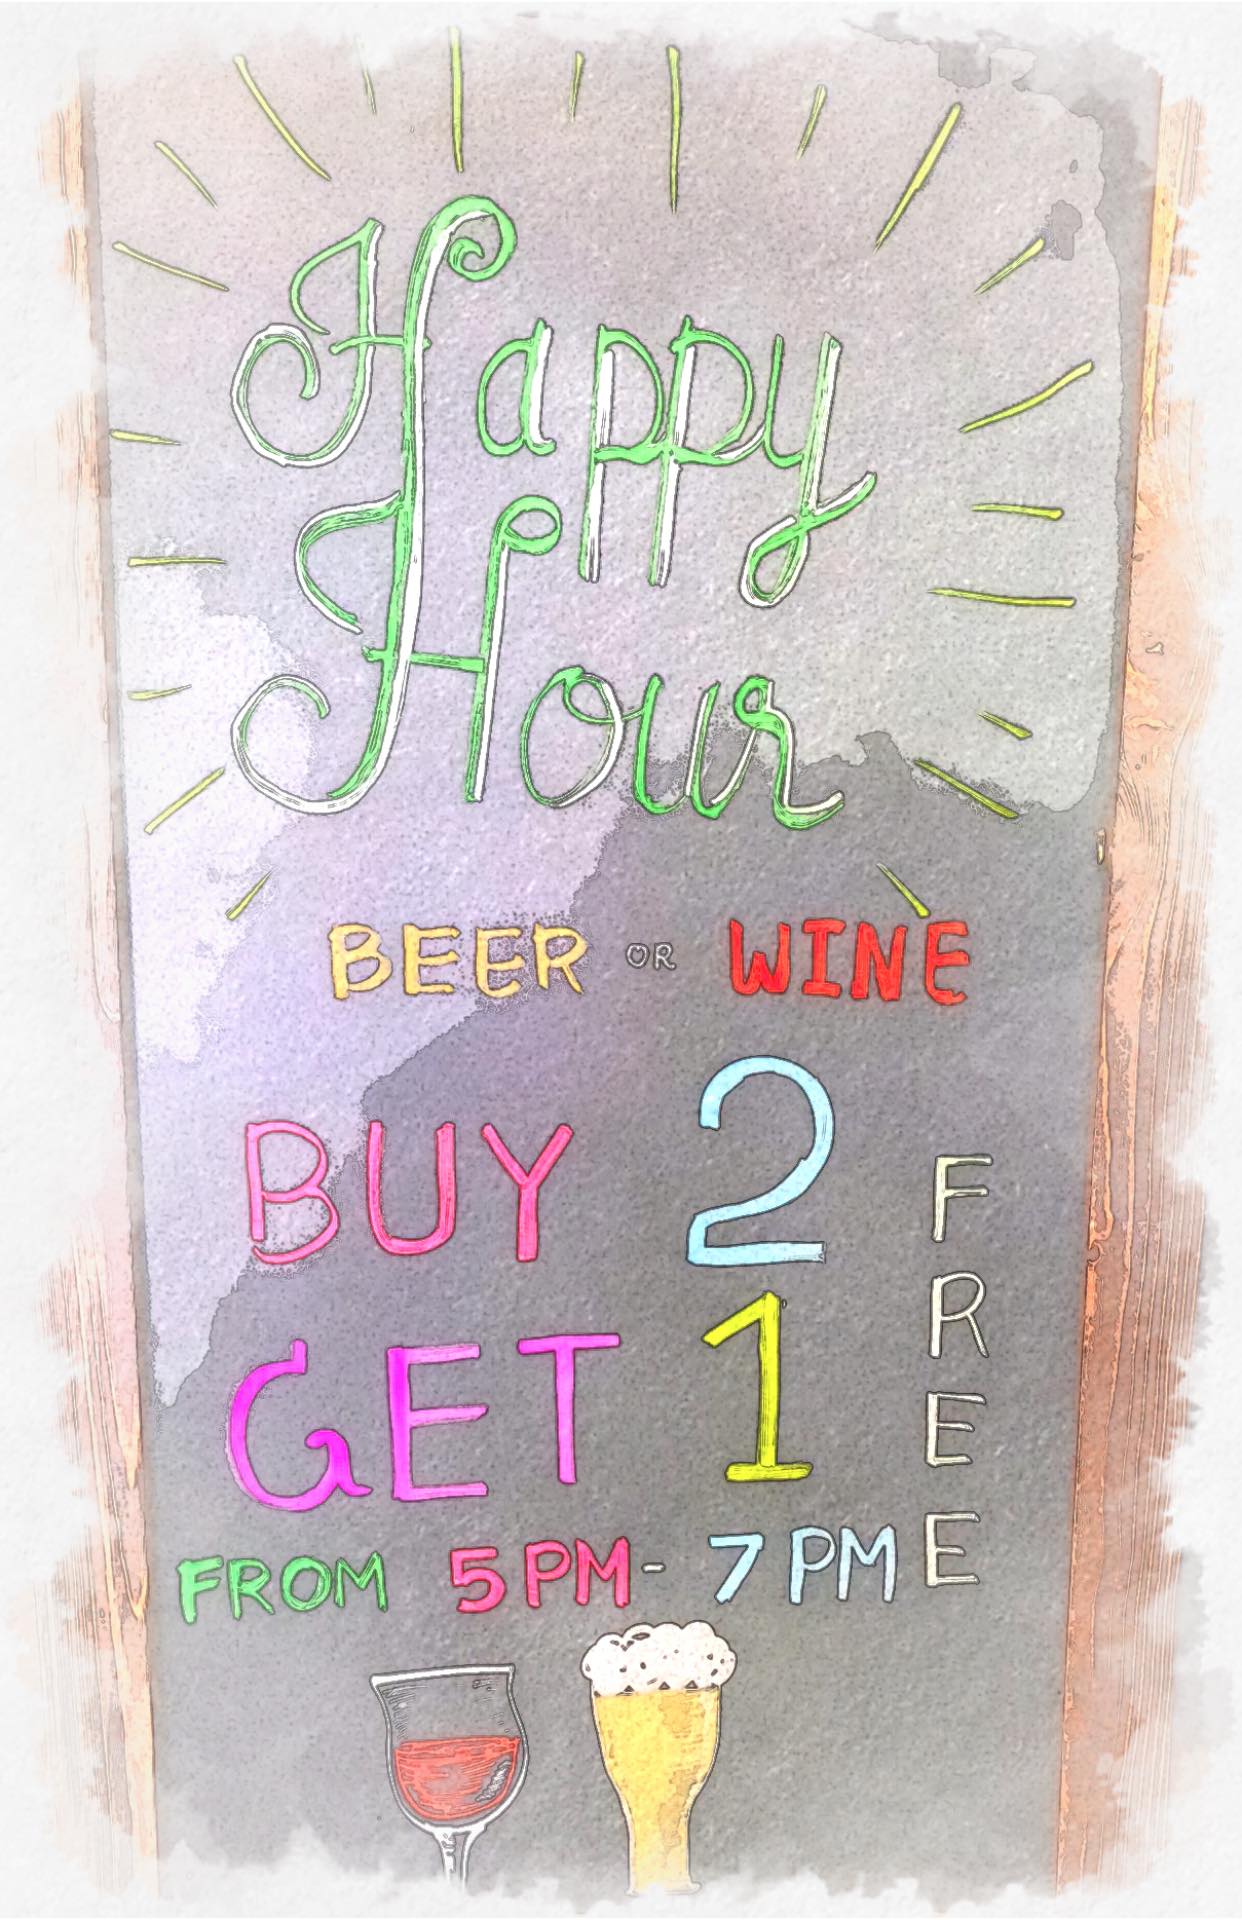 Happy
Hour
BEER OR WINE
BUY 2
GET 1
FREE
FROM 5PM - 7PM